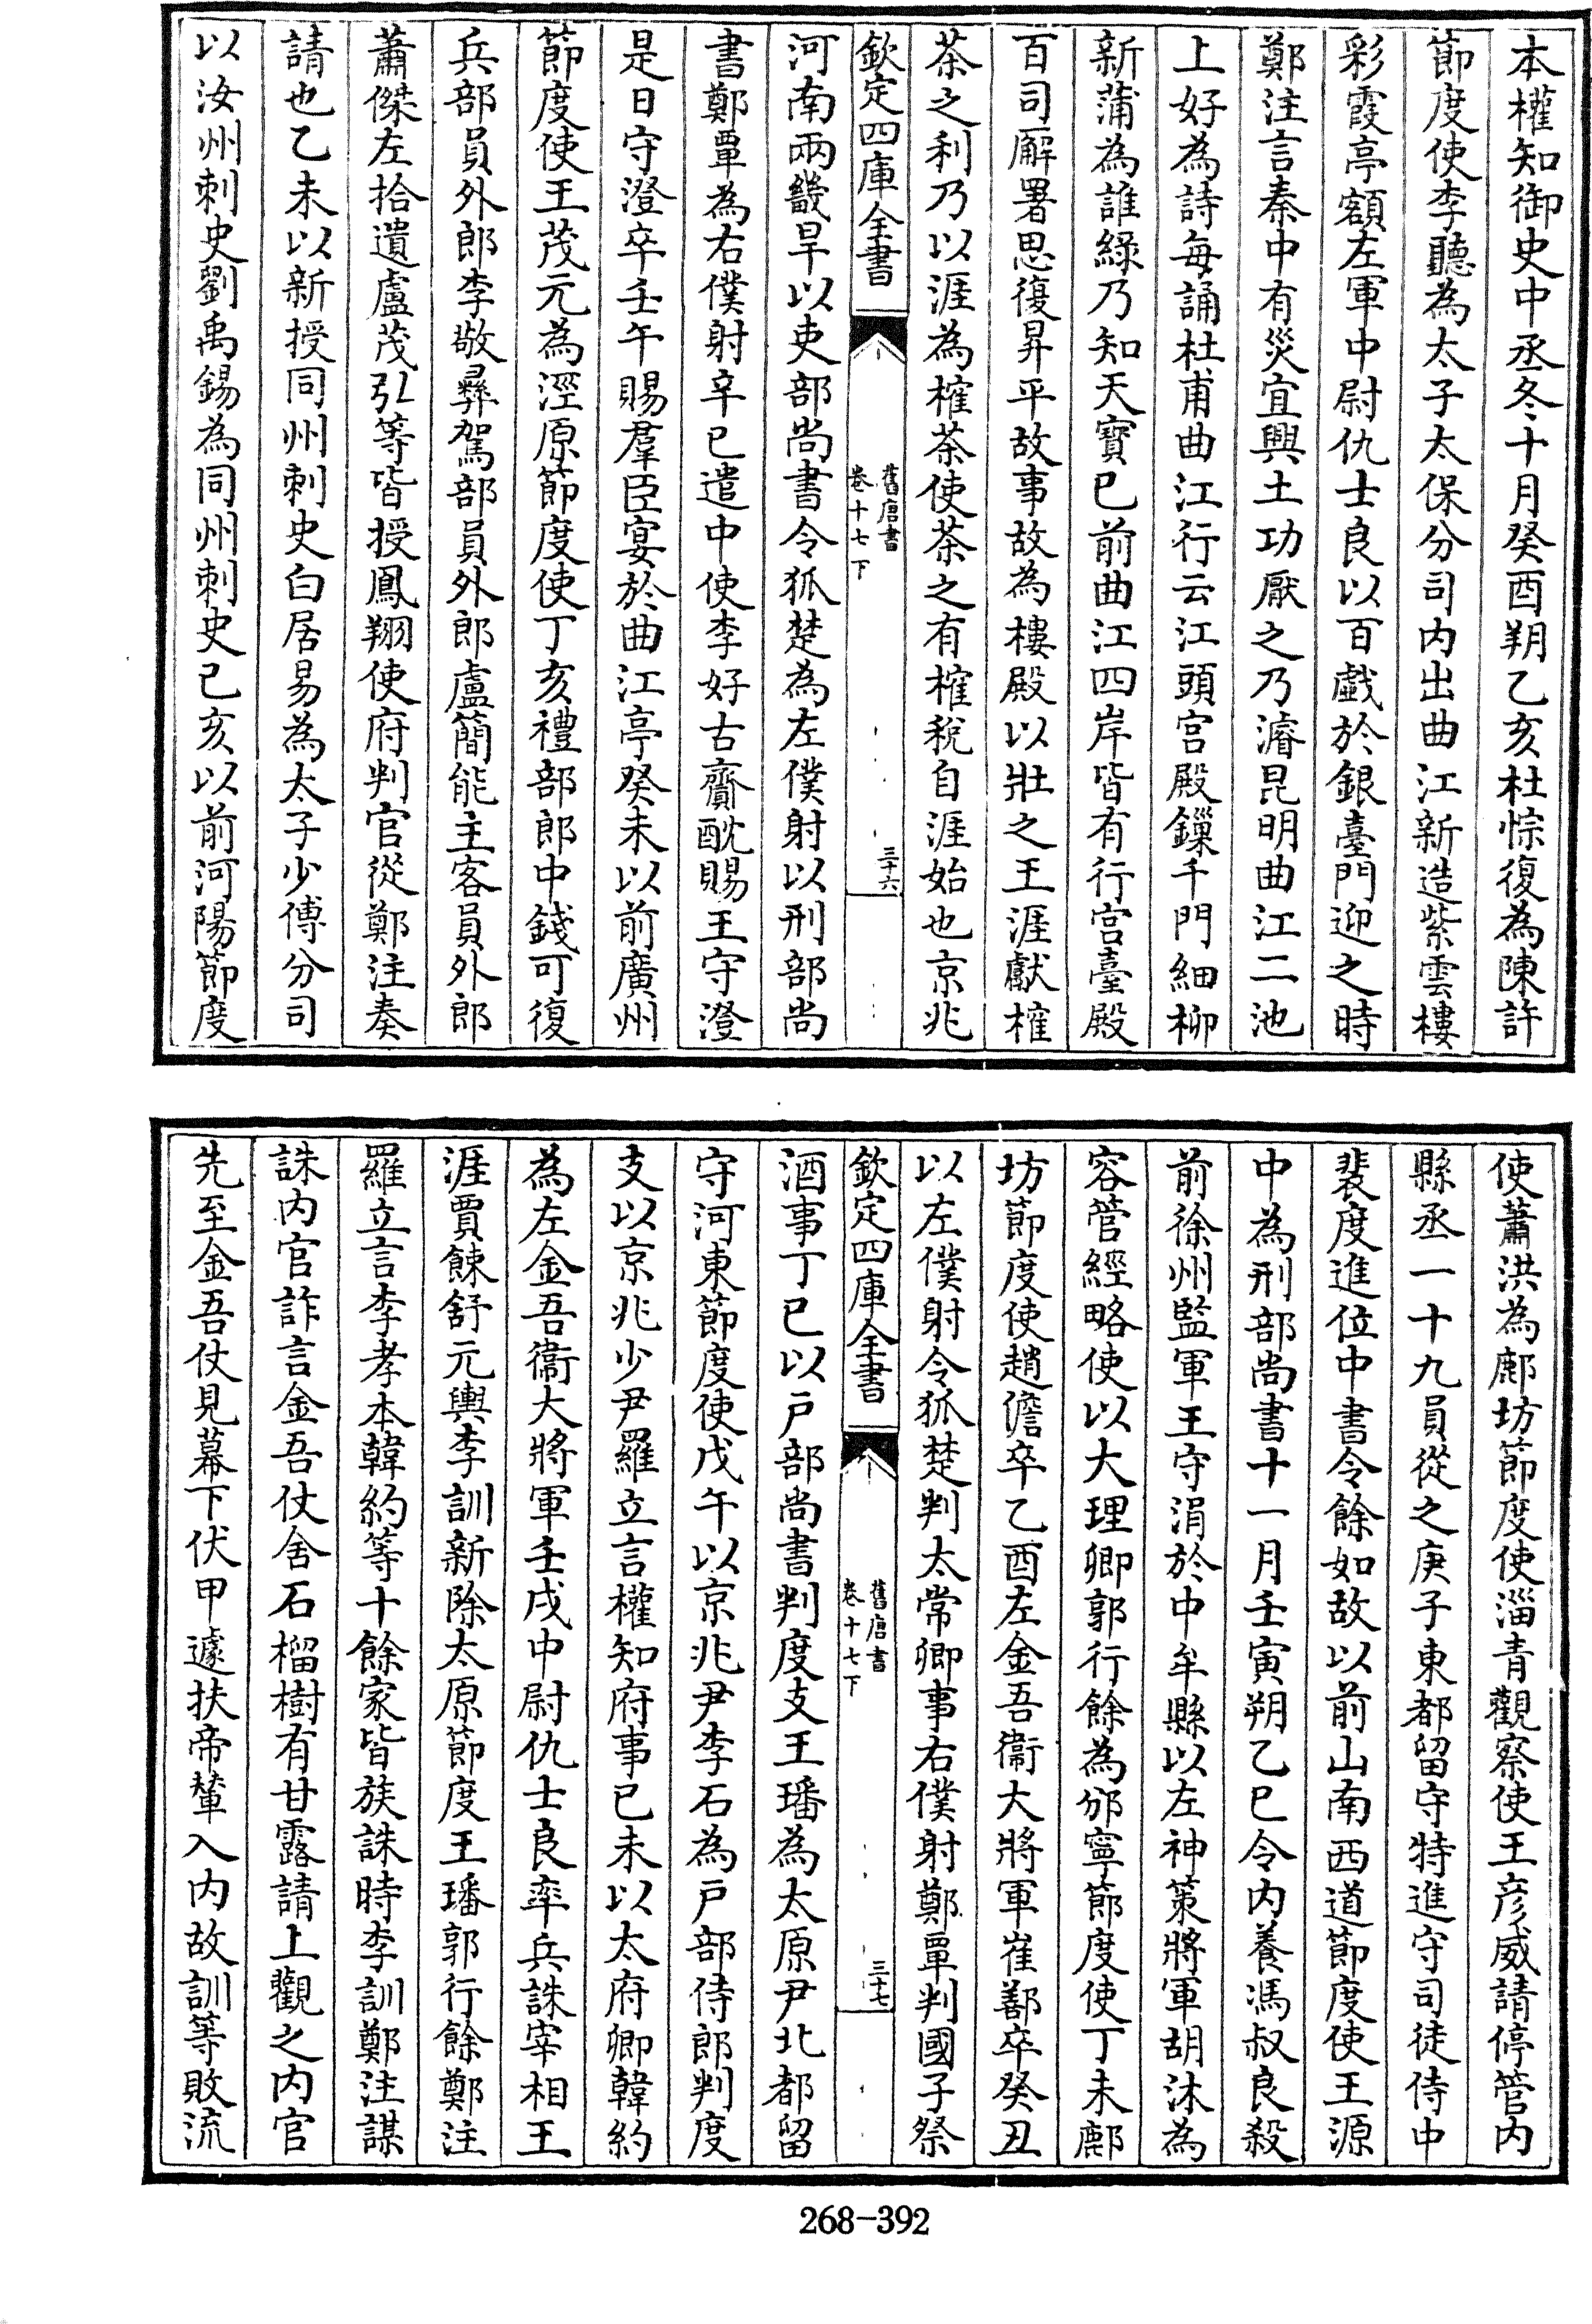 本權知御史中丞冬十月癸酉朔乙亥杜悰復為陳許
節度使李聽為太子太保分司内出曲江新造紫雲樓
彩霞亭額左軍中尉仇士良以百戲於銀臺門迎之時
鄭注言秦中有災宜興土功厭之乃濬昆明曲江二池
上好為詩每誦杜甫曲江行云江頭宫殿鏁千門細柳
新蒲為誰緑乃知天寳已前曲江四岸皆有行宫臺殿
百司廨署思復昇平故事故為樓殿以壯之王涯獻榷
茶之利乃以涯為榷茶使茶之有榷税自涯始也京兆
欽定四庫全書
舊唐書
卷十七下
三十六
河南兩畿旱以吏部尚書令狐楚為左僕射以刑部尚
書鄭覃為右僕射辛已遣中使李好古齎酖賜王守澄
是日守澄卒壬午賜羣臣宴於曲江亭癸未以前廣州
節度使王茂元為涇原節度使丁亥禮部郎中錢可復
兵部員外郎李敬彝駕部員外郎盧簡能主客員外郎
蕭傑左拾遺盧茂弘等皆授鳳翔使府判官從鄭注奏
請也乙未以新授同州刺史白居易為太子少傅分司
以汝州刺史劉禹錫為同州刺史己亥以前河陽節度
使蕭洪為鄜坊節度使淄青觀察使王彦威請停管内
縣丞一十九員從之庚子東都留守特進守司徒侍中
裴度進位中書令餘如故以前山南西道節度使王源
中為刑部尚書十一月壬寅朔乙巳令内養馮叔良殺
前徐州監軍王守涓於中牟縣以左神策將軍胡沐為
容管經略使以大理卿郭行餘為邠寧節度使丁未鄜
坊節度使趙儋卒乙酉左金吾衞大將軍崔鄯卒癸丑
以左僕射令狐楚判太常卿事右僕射鄭覃判國子祭
欽定四庫全書
舊唐書
卷十七下
三十七
酒事丁巳以户部尚書判度支王璠為太原尹北都留
守河東節度使戊午以京兆尹李石為户部侍郎判度
支以京兆少尹羅立言權知府事已未以太府卿韓約
為左金吾衞大將軍壬戌中尉仇士良率兵誅宰相王
涯賈餗舒元輿李訓新除太原節度王璠郭行餘鄭注
羅立言李孝本韓約等十餘家皆族誅時李訓鄭注謀
誅内官詐言金吾仗舍石榴樹有甘露請上觀之内官
先至金吾仗見幕下伏甲遽扶帝輦入内故訓等敗流
268-392